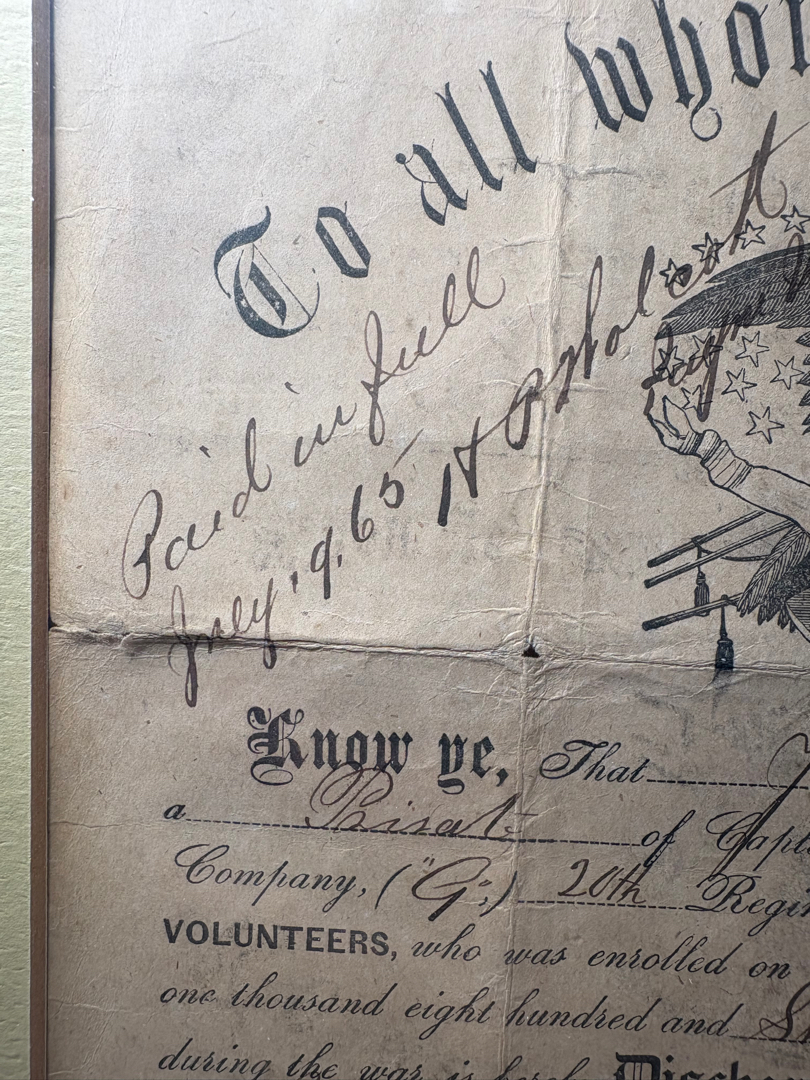 To all who
Paid in full
July, 9, 65
Know ye, That
a Privat of Capt
Company, ("G",) 20th Regi
VOLUNTEERS, who was enrolled on
one thousand eight hundred and
during the war is